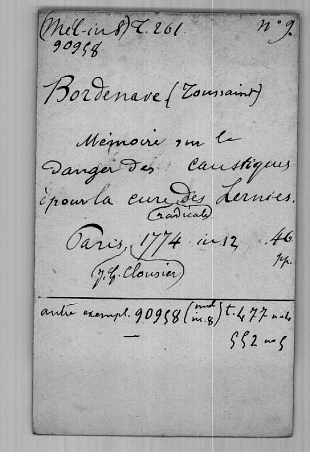 (Mél. in 8) T. 261. n° 9.
90958
Bordenave (Toussaint)
Mémoire sur le
danger des caustiques
pour la cure des hernies.
(radicale)
Paris, 1774 in 12, 46
pp.
(J. G. Clousier)
autre exempl. 90958 (mél. in. 8) t. 477 n°
552 n° 5